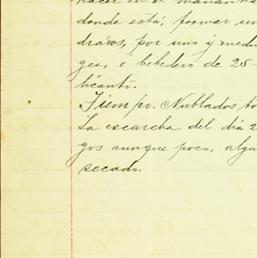 hacer en el manantial
donde está, formar un
drados, por uno y medi
ges, ó bebedero de 25-
licanto.
Tiempo. Nublados to
La escarcha del dia 2
gos aunque poco, algu
secado.